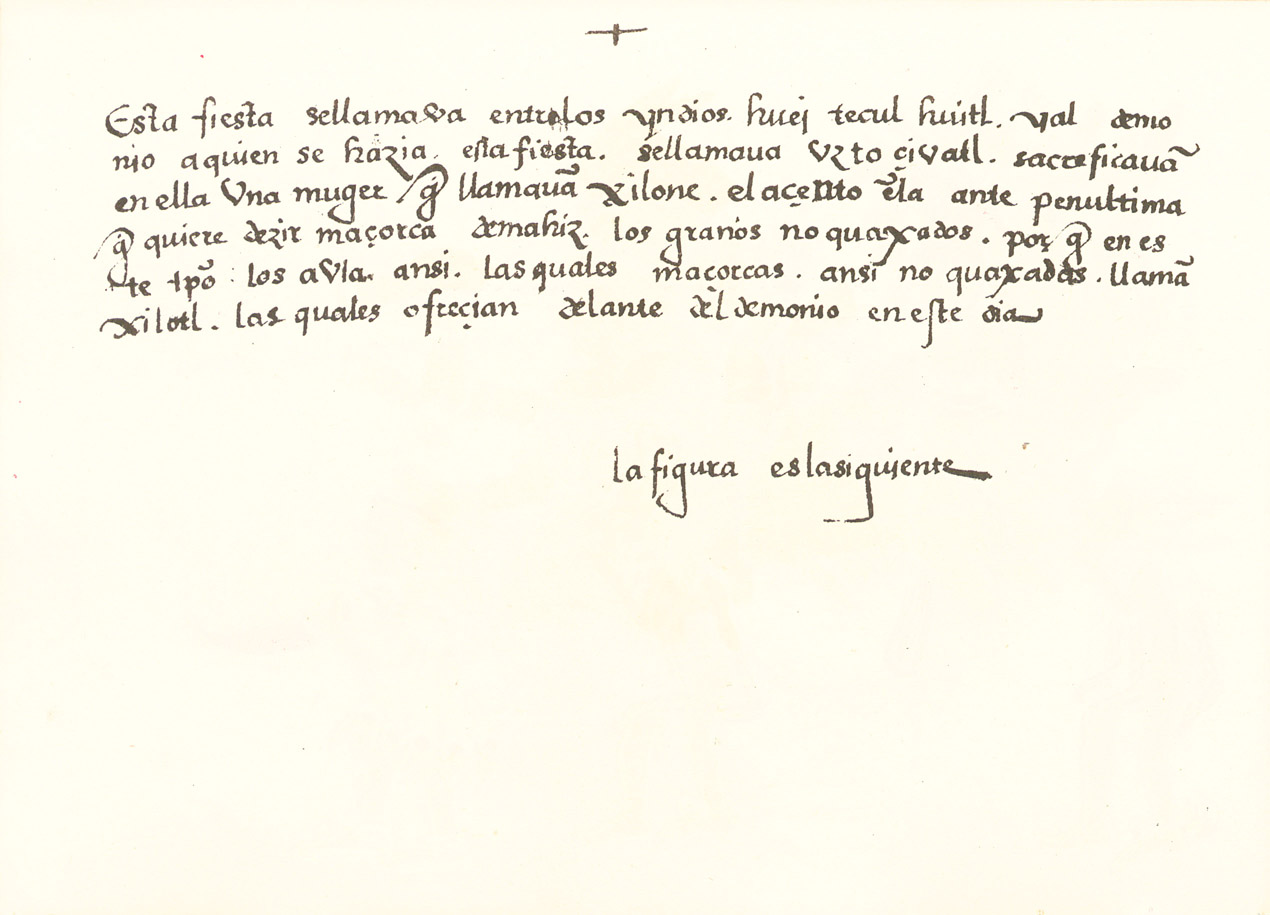 Esta fiesta sellamava entrelos yndios. huej tecul huitl. yal demo
njo aquien se hazia. esta fiesta. sellamava vzto çivatl. sacreficavã
en ella Vna muger / q̃ llamavã xilone. el açento ẽla ante penultima
/ q̃ quiere dezir maçorca demahiz. los granos no quaxados. por q̃ en es
te tpõ los avia. ansi. las quales maçorcas. ansi no quaxadas. llamã
xilotl. las quales ofreçian delante del demonio en este dia
la figura es lasiguiente